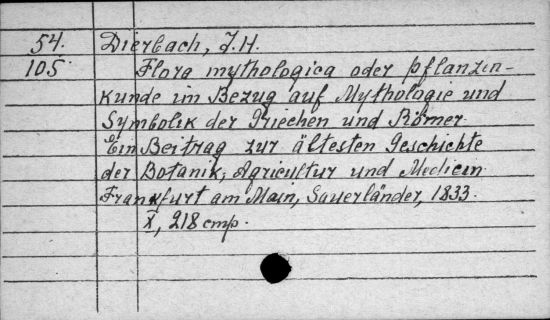 54. Dierbach, J.H.
105 Flora mythologica oder pflanzen-
kunde im Bezug auf Mythologie und
Symbolik der Griechen und Römer.
Ein Beitrag zur ältesten Geschichte
der Botanik, Agricultur und Medicin.
Frankfurt am Main, Sauerländer, 1833.
X, 218 cmp.